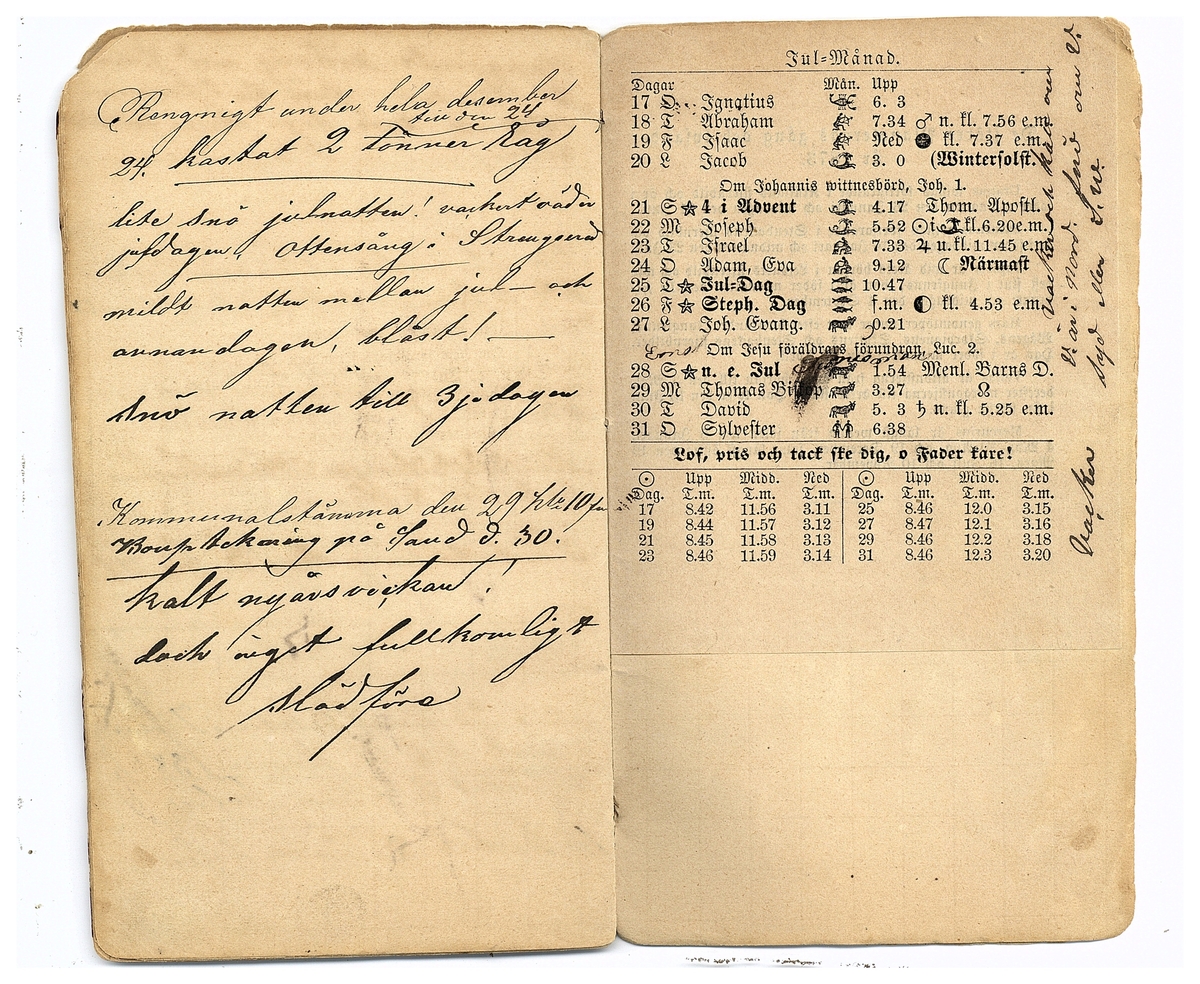 Rengnigt under hela desember
till den 24
24. kastat 2 tönner Råg
lite snö julnatten! vackert väder
juldagen, ottensång i
mildt natten mellan jul— och
annandagen, blåst! —
snö natten till 3je dagen
Kommunalstämma den 29 kle 10 fm
på Sand d. 30.
kalt nyårsveckan!
doch inget fullkomligt
slädföre
Jul-Månad.
Dagar Mån. Upp
17 O Ignatius 6. 3
18 T Abraham 7.34 ♂ n. kl. 7.56 e.m.
19 F Isaac Ned ● kl. 7.37 e.m.
20 L Jacob 3. 0 (Wintersolst.)
Om Johannis wittnesbörd, Joh. 1.
21 S ☆ 4 i Advent 4.17 Thom. Apostl.
22 M Joseph 5.52 ☉ i ♑ kl. 6.20 e.m.
23 T Israel 7.33 ♃ u. kl. 11.45 e.m.
24 O Adam, Eva 9.12 ☾ Närmast
25 T ☆ Jul-Dag 10.47
26 F ☆ Steph. Dag f.m. ◐ kl. 4.53 e.m.
27 L Joh. Evang. 0.21
Om Jesu föräldrars förundran, Luc. 2.
28 S ☆ n. e. Jul 1.54 Menl. Barns D.
29 M Thomas Biskop 3.27 ☊
30 T David 5. 3 ♄ n. kl. 5.25 e.m.
31 O Sylvester 6.38
Lof, pris och tack ske dig, o Fader käre!
☉ Upp Midd. Ned ☉ Upp Midd. Ned
Dag. T.m. T.m. T.m. Dag. T.m. T.m. T.m.
17 8.42 11.56 3.11 25 8.46 12.0 3.15
19 8.44 11.57 3.12 27 8.47 12.1 3.16
21 8.45 11.58 3.13 29 8.46 12.2 3.18
23 8.46 11.59 3.14 31 8.46 12.3 3.20